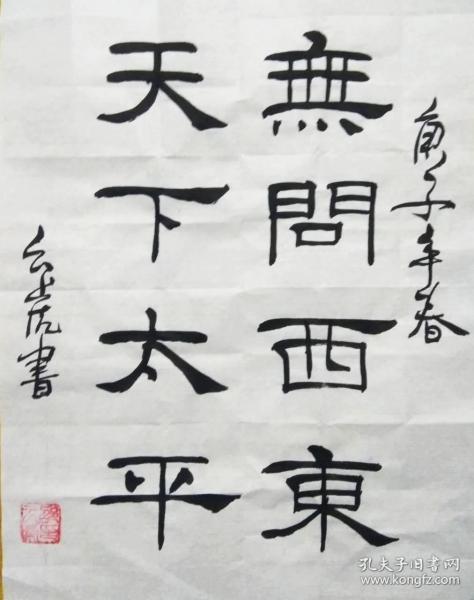 庚子年春
無問西東
天下太平
書
孔夫子旧书网
www.kongfz.com